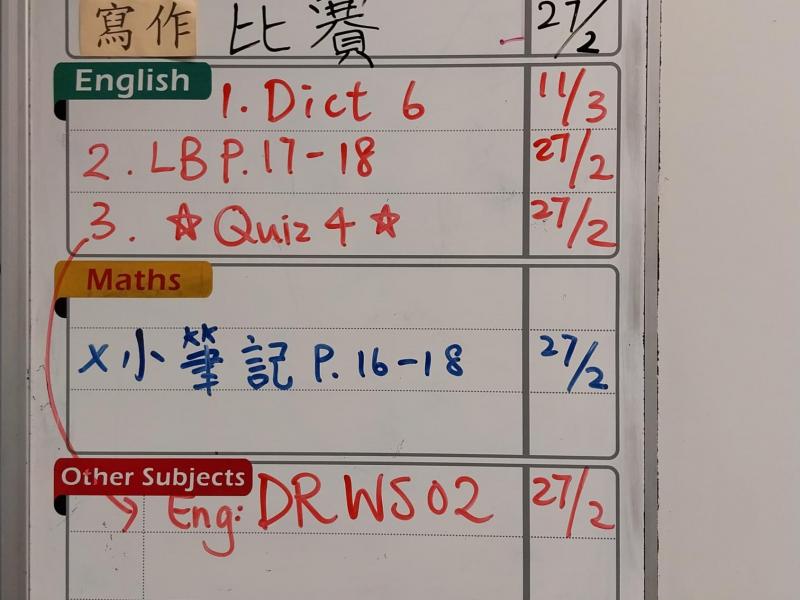 寫作 比賽 27/2
English
1. Dict 6 11/3
2. LB P.17-18 27/2
3. ☆ Quiz 4 ☆ 27/2
Maths
x 小筆記 P. 16-18 27/2
Other Subjects
Eng: DR WS 02 27/2